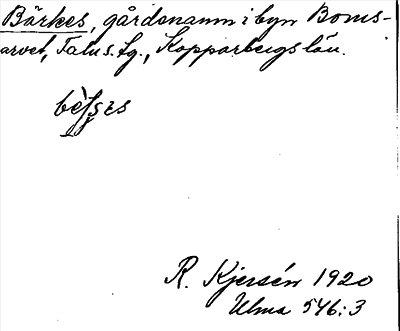 Bärkes, gårdsnamn i byn Boms-
arvet, Falu s. Lg., Kopparbergs län.
R. Kjersén 1920
Ulma 546:3